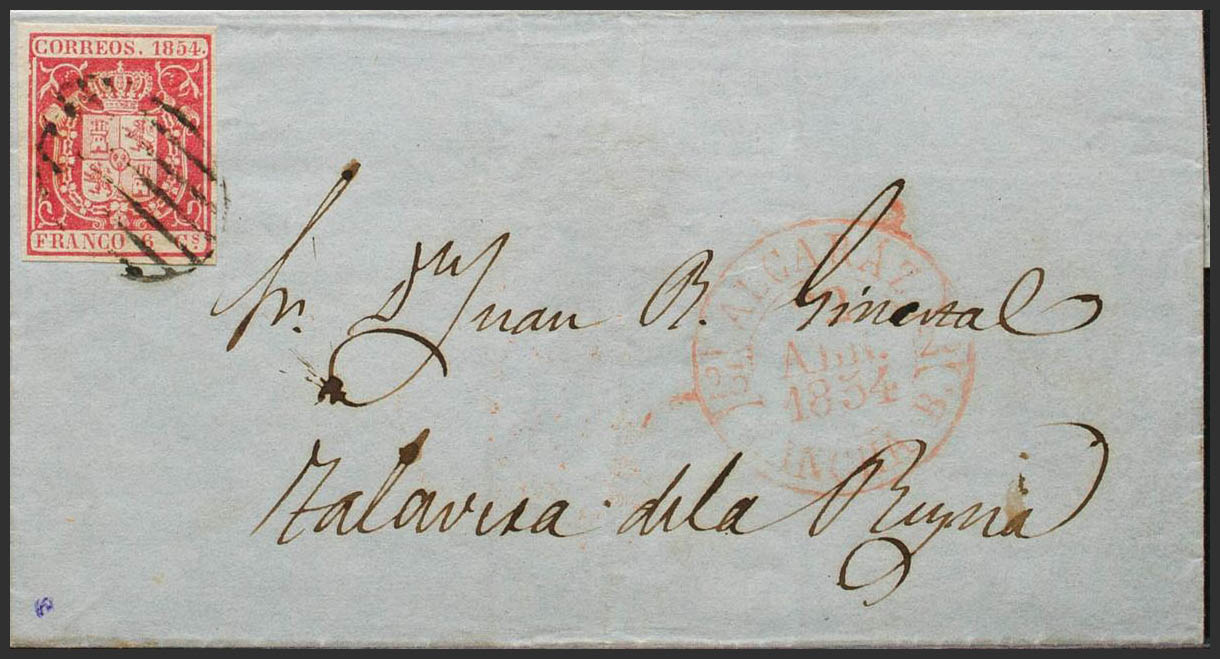 CORREOS. 1854.
FRANCO 6 Cs
ALCARAZ
2
ABR.
1854
Sr. Dn Juan B. Ginestal
Talavera dela Reyna